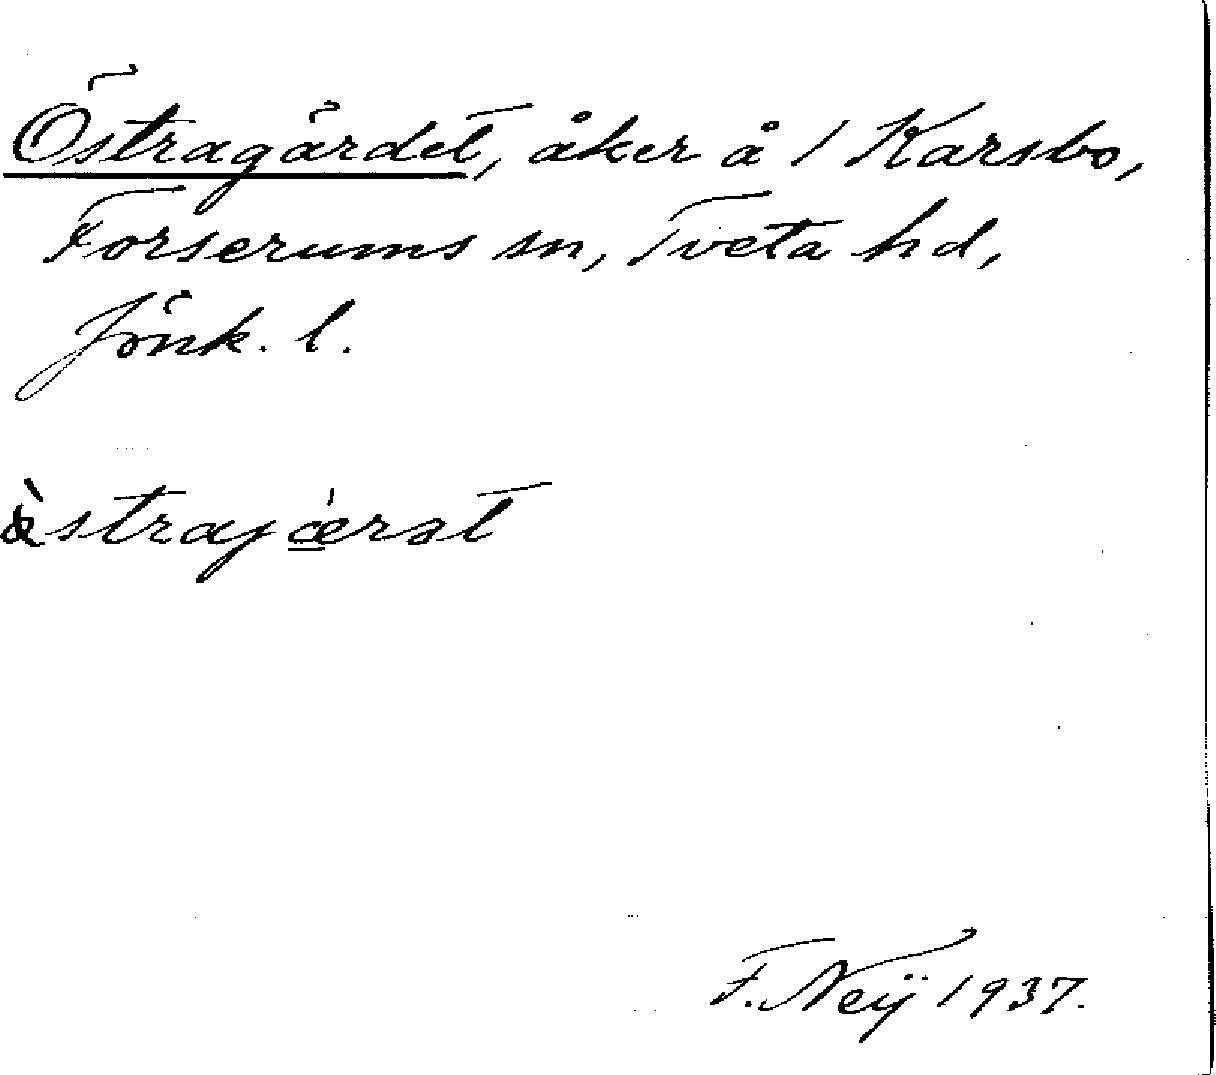 Östragärdet, åker å 1 Karsbo,
Forserums sn, Tveta hd,
Jönk. l.
östrajǽ̲rət
F. Neÿ 1937.